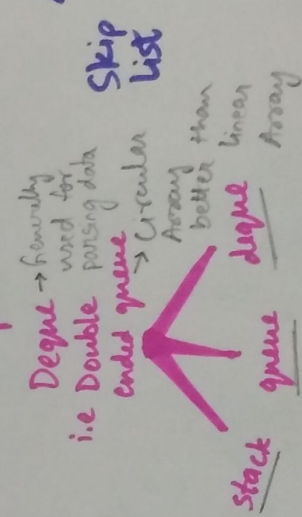 Deque → Generally
used for
parsing data
i.e Double
ended queue
→ Circular
Array
better than
linear
Array
Skip
List
stack
queue
deque